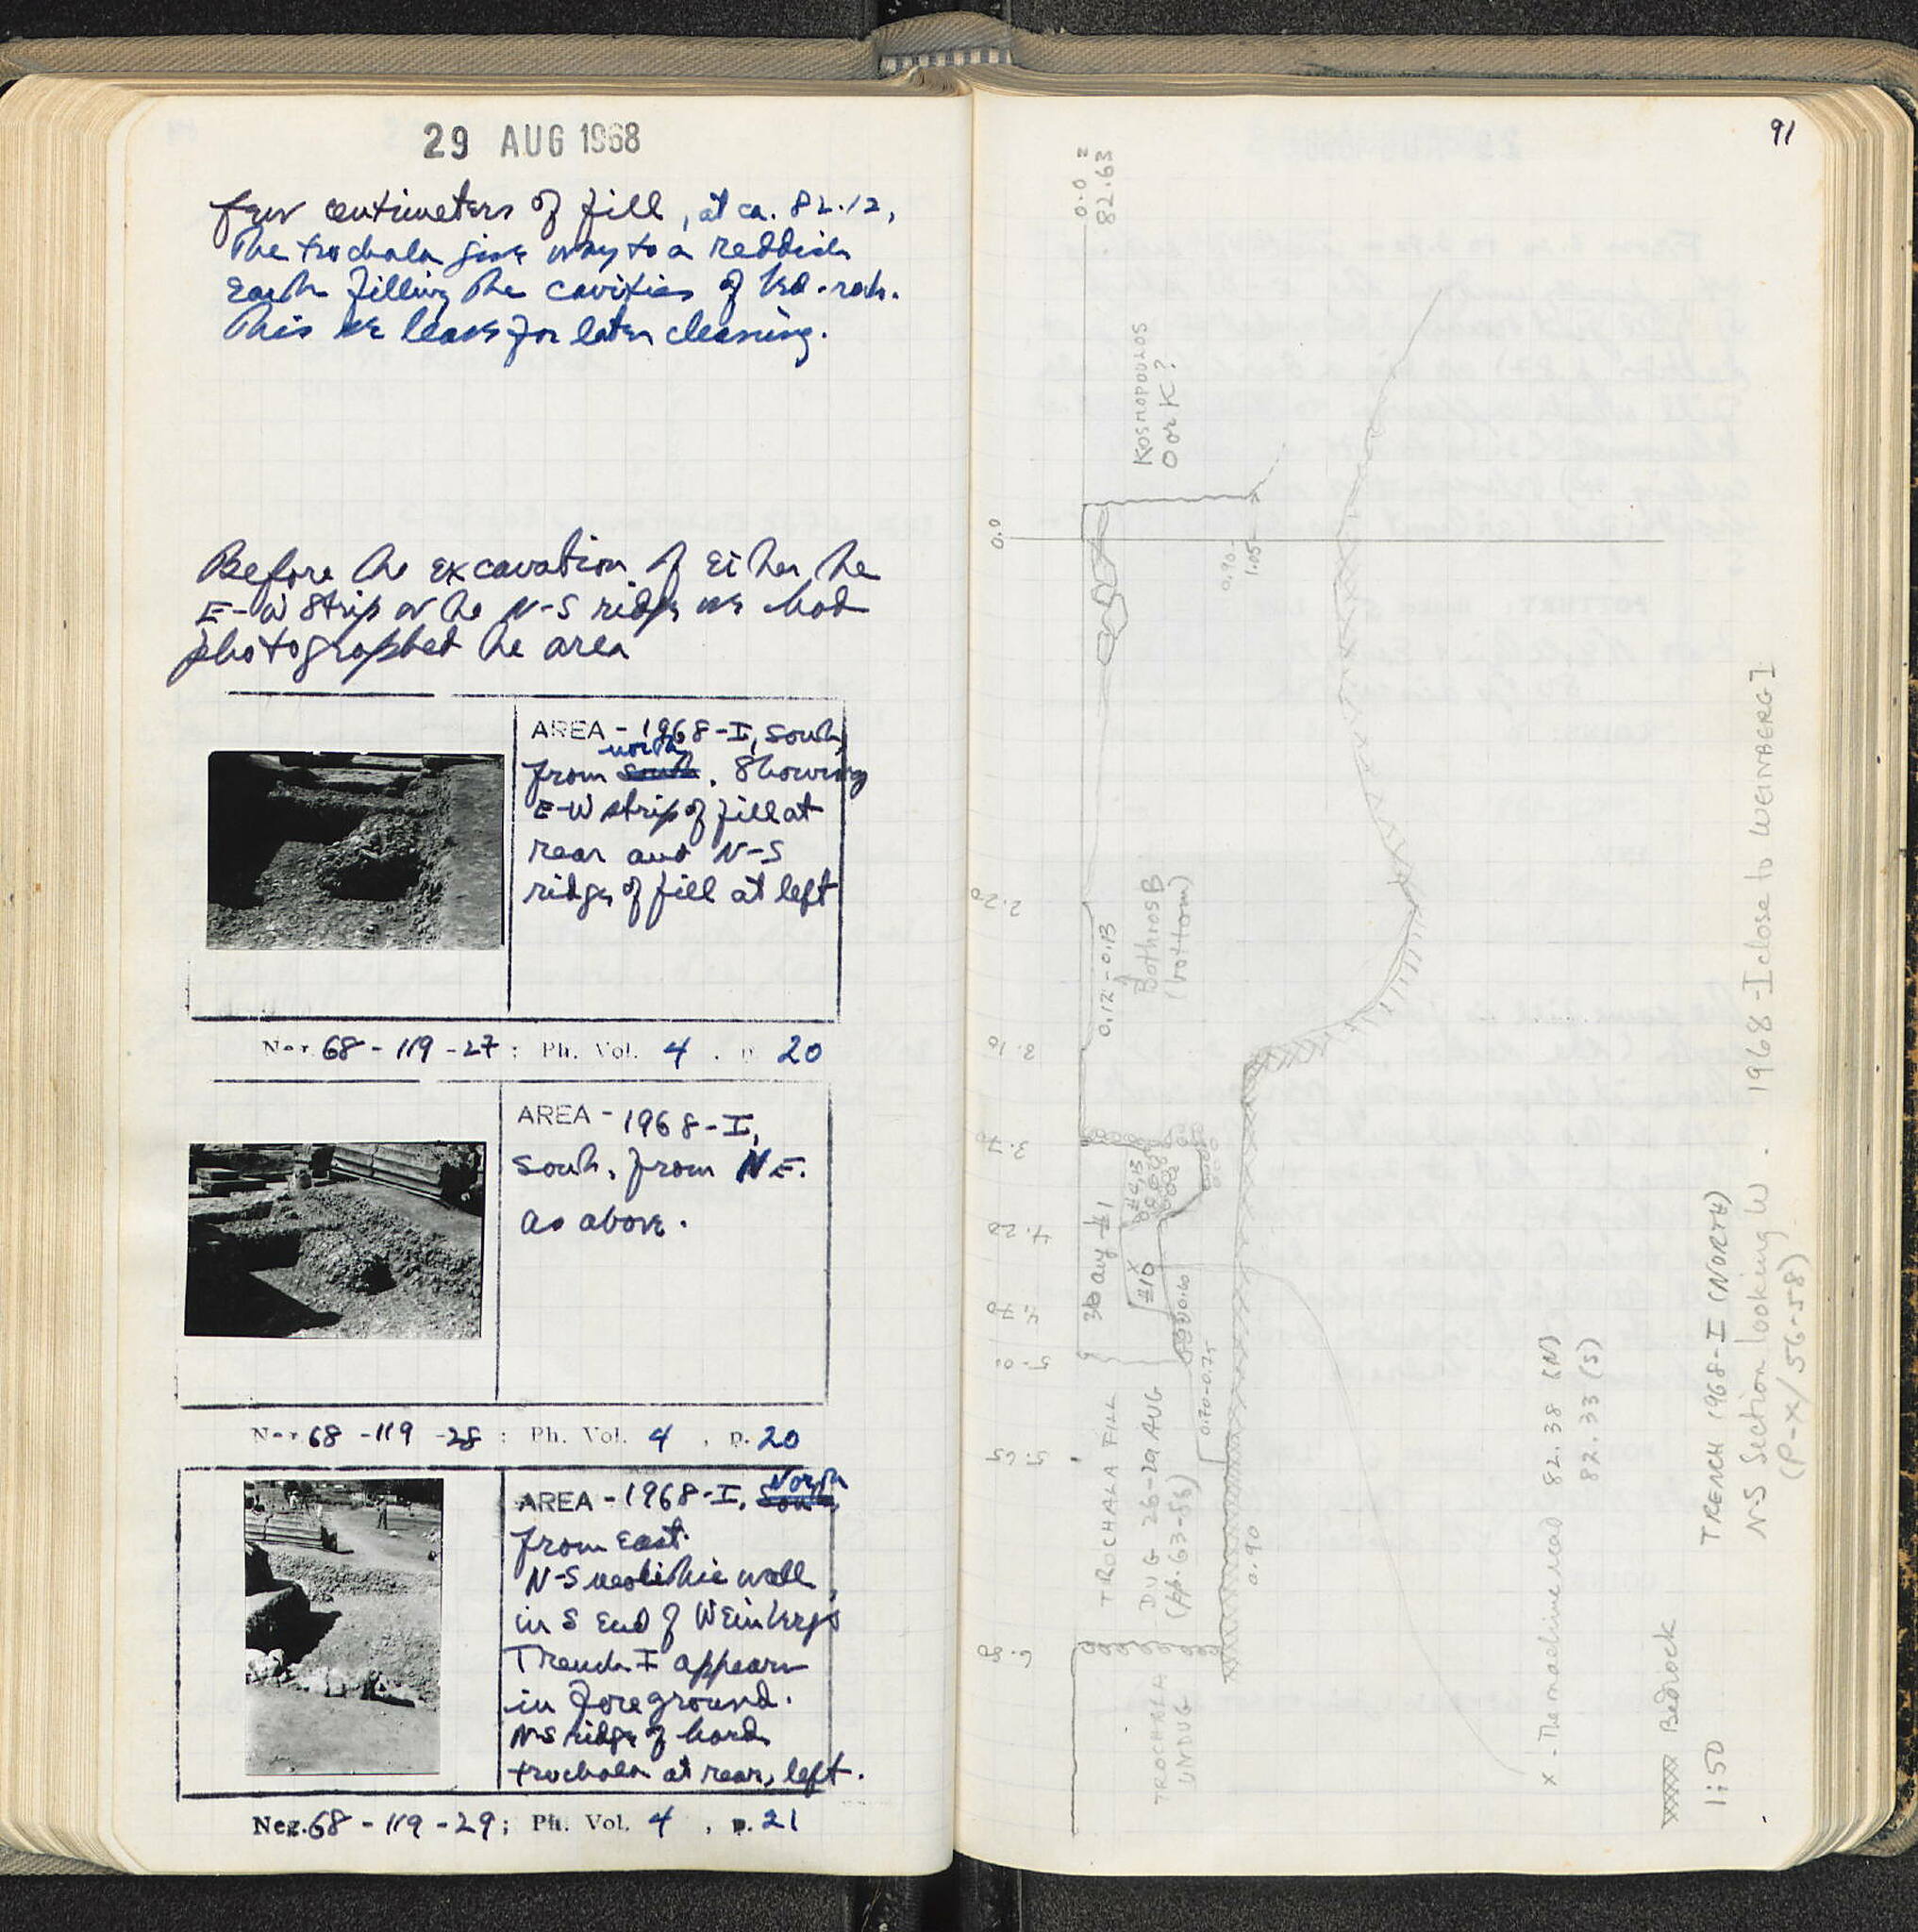 29 AUG 1968
few centimeters of fill, at ca. 82.12,
The trochala give way to a reddish
Earth filling the cavities of bed-rock.
This we leave for later cleaning.
Before the excavation of either the
E-W strip or the N-S ridge we had
photographed the area
AREA - 1968-I, South,
north
from south. Showing
E-W strip of fill at
rear and N-S
ridge of fill at left
Neg. 68-119-27; Ph. Vol. 4, p. 20
AREA - 1968-I,
South, from NE.
as above.
Neg. 68-119-28; Ph. Vol. 4, p. 20
North
AREA - 1968-I, South,
from East.
N-S neolithic wall
in S End of Weinbergs
Trench I appears
in foreground.
N-S ridge of hard
trochala at rear, left.
Neg. 68-119-29; Ph. Vol. 4, p. 21
91
0.0 =
82.63
KOSMOPOULOS
O or K?
0.0
0.90-
1.05-
2.20
0.12-0.13
Bothros B
(bottom)
3.10
3.70
4.20
4.70
5.65
#1
#10
0.70-0.75
TROCHALA FILL
DUG 26-29 AUG
(pp. 63-88)
0.90
TROCHALA
UNDUG
x - The machine read 82.38 (N)
82.33 (S)
Bedrock
1:50
TRENCH 1968-I (NORTH)
N-S Section looking W. 1968-I close to WEINBERG I
(P-X/56-58)